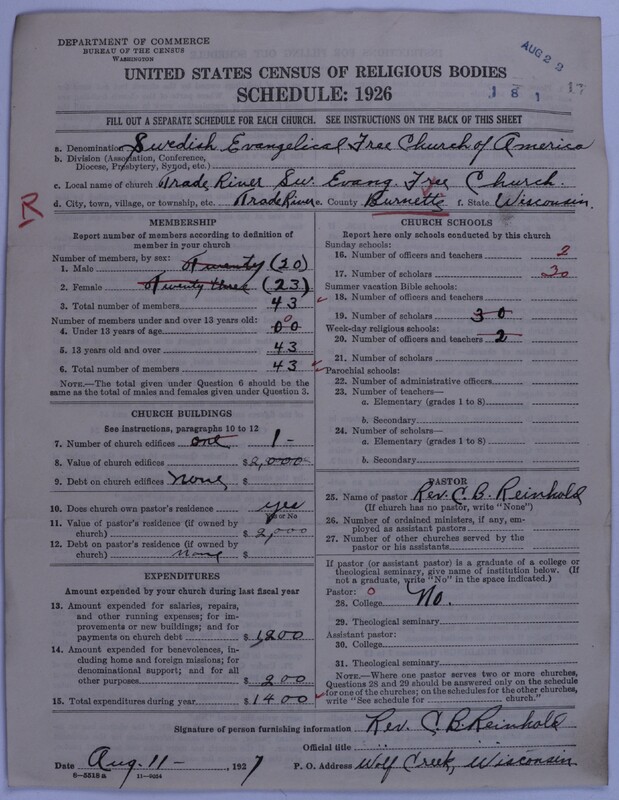 DEPARTMENT OF COMMERCE
BUREAU OF THE CENSUS
WASHINGTON
AUG 29
1 8 1 17
UNITED STATES CENSUS OF RELIGIOUS BODIES
SCHEDULE: 1926
FILL OUT A SEPARATE SCHEDULE FOR EACH CHURCH. SEE INSTRUCTIONS ON THE BACK OF THIS SHEET
a. Denomination Swedish Evangelical Free Church of America
b. Division (Association, Conference, Diocese, Presbytery, Synod, etc.)
c. Local name of church Trade River Sw. Evang. Free Church.
d. City, town, village, or township, etc. Trade River e. County Burnette f. State Wisconsin.
R
MEMBERSHIP
Report number of members according to definition of
member in your church
Number of members, by sex:
1. Male Twenty (20)
2. Female Twenty three (23)
3. Total number of members 43
Number of members under and over 13 years old:
4. Under 13 years of age 00 0
5. 13 years old and over 43
6. Total number of members 43
NOTE.—The total given under Question 6 should be the
same as the total of males and females given under Question 3.
CHURCH BUILDINGS
See instructions, paragraphs 10 to 12
7. Number of church edifices one 1-
8. Value of church edifices $2,000
9. Debt on church edifices None $
10. Does church own pastor's residence yes
Yes or No
11. Value of pastor's residence (if owned by
church) $2,000
12. Debt on pastor's residence (if owned by
church) none $
EXPENDITURES
Amount expended by your church during last fiscal year
13. Amount expended for salaries, repairs,
and other running expenses; for im-
provements or new buildings; and for
payments on church debt $1,200
14. Amount expended for benevolences, in-
cluding home and foreign missions; for
denominational support; and for all
other purposes $200
15. Total expenditures during year $1400
CHURCH SCHOOLS
Report here only schools conducted by this church
Sunday schools:
16. Number of officers and teachers 2
17. Number of scholars 30
Summer vacation Bible schools:
18. Number of officers and teachers
19. Number of scholars 30
Week-day religious schools:
20. Number of officers and teachers 2
21. Number of scholars
Parochial schools:
22. Number of administrative officers
23. Number of teachers—
a. Elementary (grades 1 to 8)
b. Secondary
24. Number of scholars—
a. Elementary (grades 1 to 8)
b. Secondary
PASTOR
25. Name of pastor Rev. C. B. Reinhold
(If church has no pastor, write "None")
26. Number of ordained ministers, if any, em-
ployed as assistant pastors
27. Number of other churches served by the
pastor or his assistants
If pastor (or assistant pastor) is a graduate of a college or
theological seminary, give name of institution below. (If
not a graduate, write "No" in the space indicated.)
Pastor: 0
28. College No.
29. Theological seminary
Assistant pastor:
30. College
31. Theological seminary
NOTE.—Where one pastor serves two or more churches,
Questions 28 and 29 should be answered only on the schedule
for one of the churches; on the schedules for the other churches,
write "See schedule for church."
Signature of person furnishing information Rev. C. B. Reinhold
Official title
Date Aug. 11 - , 1927 P. O. Address Wolf Creek, Wisconsin
6—5518 a 11—9064